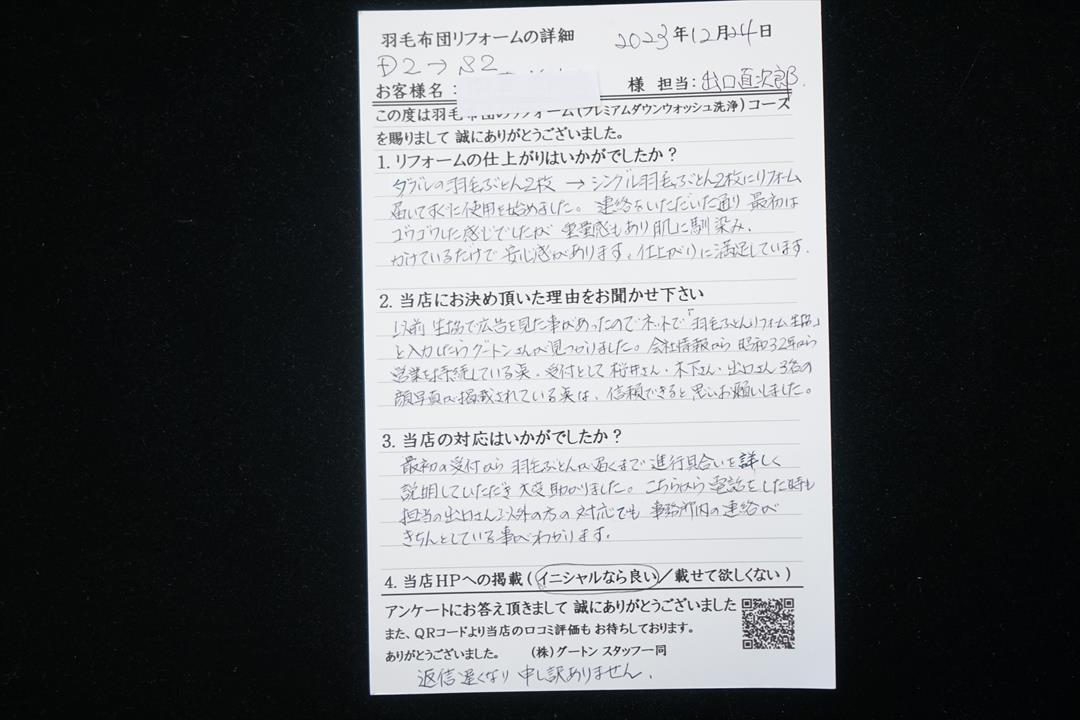 羽毛布団リフォームの詳細 2023年12月24日
D2→S2
お客様名： 様 担当：出口直次郎
この度は羽毛布団のリフォーム(プレミアムダウンウオッシュ洗浄)コース
を賜りまして 誠にありがとうございました。
1. リフォームの仕上がりはいかがでしたか？
ダブルの羽毛ぶとん2枚 → シングル羽毛ぶとん2枚にリフォーム
届いてすぐに使用を始めました。連絡をいただいた通り 最初は
ゴワゴワした感じでしたが 重量感もあり肌に馴染み、
かけているだけで安心感があります。仕上がりに満足しています.
2. 当店にお決め頂いた理由をお聞かせ下さい
以前 生協で広告を見た事があったのでネットで「羽毛ふとんリフォーム生協」
と入力したらグートンさんが見つかりました。会社情報から 昭和32年から
営業を持続している事、受付として 桜井さん・木下さん・出口さん 3名の
顔写真が掲載されている事は、信頼できると思いお願いしました。
3. 当店の対応はいかがでしたか？
最初の受付から 羽毛ぶとんが届くまで 進行具合いを詳しく
説明していただき 大変助かりました。こちらから電話をした時も
担当の出口さん以外の方の対応でも 事務所内の連絡が
きちんとしている事がわかります。
4. 当店HPへの掲載 ( イニシャルなら良い／載せて欲しくない )
アンケートにお答え頂きまして 誠にありがとうございました
また、QRコードより当店の口コミ評価も お待ちしております。
ありがとうございました。 (株)グートン スタッフ一同
返信遅くなり 申し訳ありません.